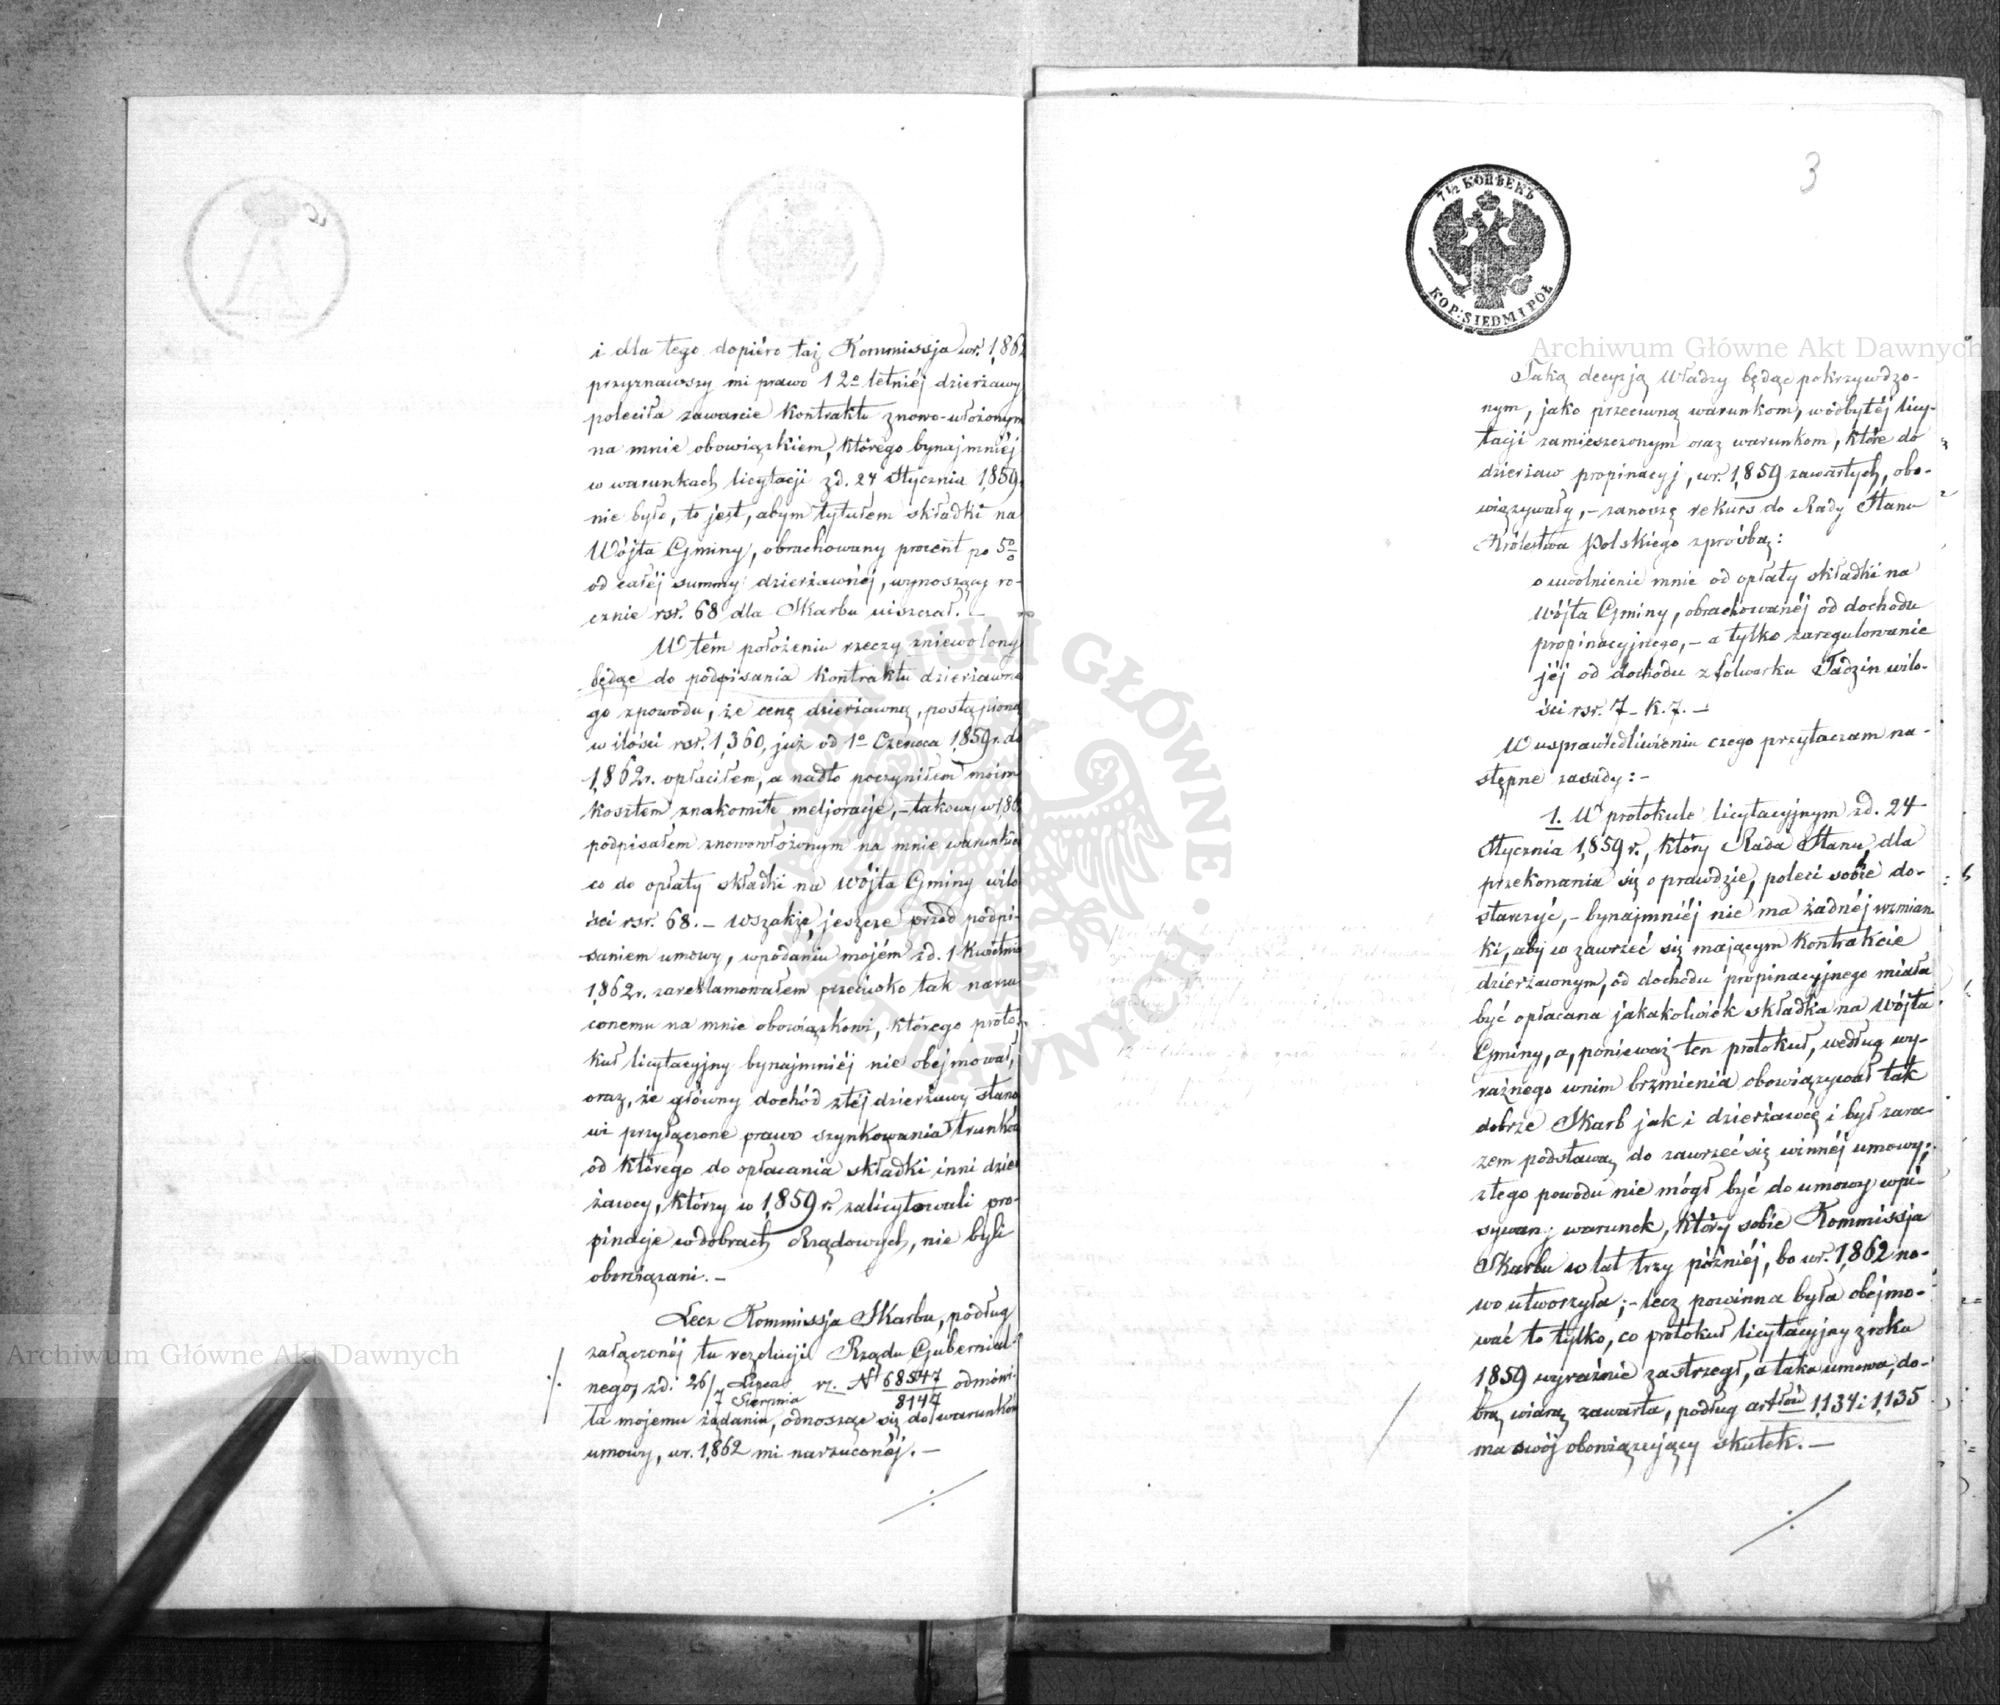 i dla tego dopiéro taż Kommissja w r. 1862
przyznawszy mi prawo 12o letniéj dzierżawy
poleciła zawarcie kontraktu z nowo-włożonym
na mnie obowiązkiem, którego bynajmniéj
w warunkach licytacji z d. 24 Stycznia 1859
nie było, to jest, abym tytułem składki na
Wójta Gminy, obrachowany procent po 5%
od całéj summy dzierżawnéj, wynoszący ro-
cznie rsr. 68 dla Skarbu uiszczał. —
W tém położeniu rzeczy zniewolony
będąc do podpisania kontraktu dzierżawne
go z powodu, że cenę dzierżawną, postąpioną
w ilości rsr. 1,360, już od 1o Czerwca 1859 r. do
1862 r. opłaciłem, a nadto poczyniłem moim
kosztem znakomite meljoracje, – takowy w 186
podpisałem z nowowłożonym na mnie warunkiem
co do opłaty składki na Wójta Gminy w ilo
ści rsr. 68. – Wszakże, jeszcze przed podpi-
saniem umowy, w podaniu mojém z d. 1 Kwietnia
1862 r. zareklamowałem przeciwko tak narzu
conemu na mnie obowiązkowi, którego proto-
kuł licytacyjny bynajmniéj nie obejmował,
oraz, że główny dochód z téj dzierżawy stano
wi przyłączone prawo szynkowania trunków
od którego do opłacania składki inni dzier
żawcy, którzy w 1859 r. zalicytowali pro-
pinacje w dobrach Rządowych, nie byli
obowiązani. —
Lecz Kommissja Skarbu, podług
załączonéj tu rezolucji Rządu Gubernial-
nego, z d. 26/7 Lipca/Sierpnia r. z. No 68547/8147 odmówi-
ła mojemu żądaniu, odnosząc się do warunków
umowy, w r. 1862 mi narzuconéj. —
3
7½ КОПѢЕКЪ
KOP: SIEDM I PÓŁ
Taką decyzją Władzy będąc pokrzywdzo-
nym, jako przeciwną warunkom, w odbytéj licy-
tacji zamieszczonym oraz warunkom, które do
dzierżaw propinacyj, w r. 1859 zawartych, obo-
wiązywały, – zanoszę rekurs do Rady Stanu
Królestwa Polskiego z prośbą:
o uwolnienie mnie od opłaty składki na
Wójta Gminy, obrachowanéj od dochodu
propinacyjnego, – a tylko zaregulowanie
jéj od dochodu z folwarku Tadzin w ilo-
ści rsr. 7 – k. 7. —
W usprawiedliwieniu czego przytaczam na-
stępne zasady: –
1. W protokule licytacyjnym z d. 24
Stycznia 1859 r., który Rada Stanu, dla
przekonania się o prawdzie, poleci sobie do-
starczyć, – bynajmniéj nie ma żadnéj wzmian
ki, aby w zawrzeć się mającym kontrakcie
dzierżawnym, od dochodu propinacyjnego miała
być opłacana jakakolwiek składka na Wójta
Gminy, a, ponieważ ten protokuł, według wy-
raźnego w nim brzmienia obowiązywał tak
dobrze Skarb jak i dzierżawcę i był zara-
zem podstawą do zawrzeć się winnéj umowy;
z tego powodu nie mógł być do umowy wpi-
sywany warunek, który sobie Kommissja
Skarbu w lat trzy późniéj, bo w r. 1862 no-
wo utworzyła; – lecz powinna była obejmo-
wać to tylko, co protokuł licytacyjny z roku
1859 wyraźnie zastrzegł, a taka umowa, do-
brą wiarą zawarta, podług artłów 1134 i 1135
ma swój obowiązujący skutek. —
Archiwum Główne Akt Dawnych
Archiwum Główne Akt Dawnych
ARCHIWUM GŁÓWNE AKT DAWNYCH